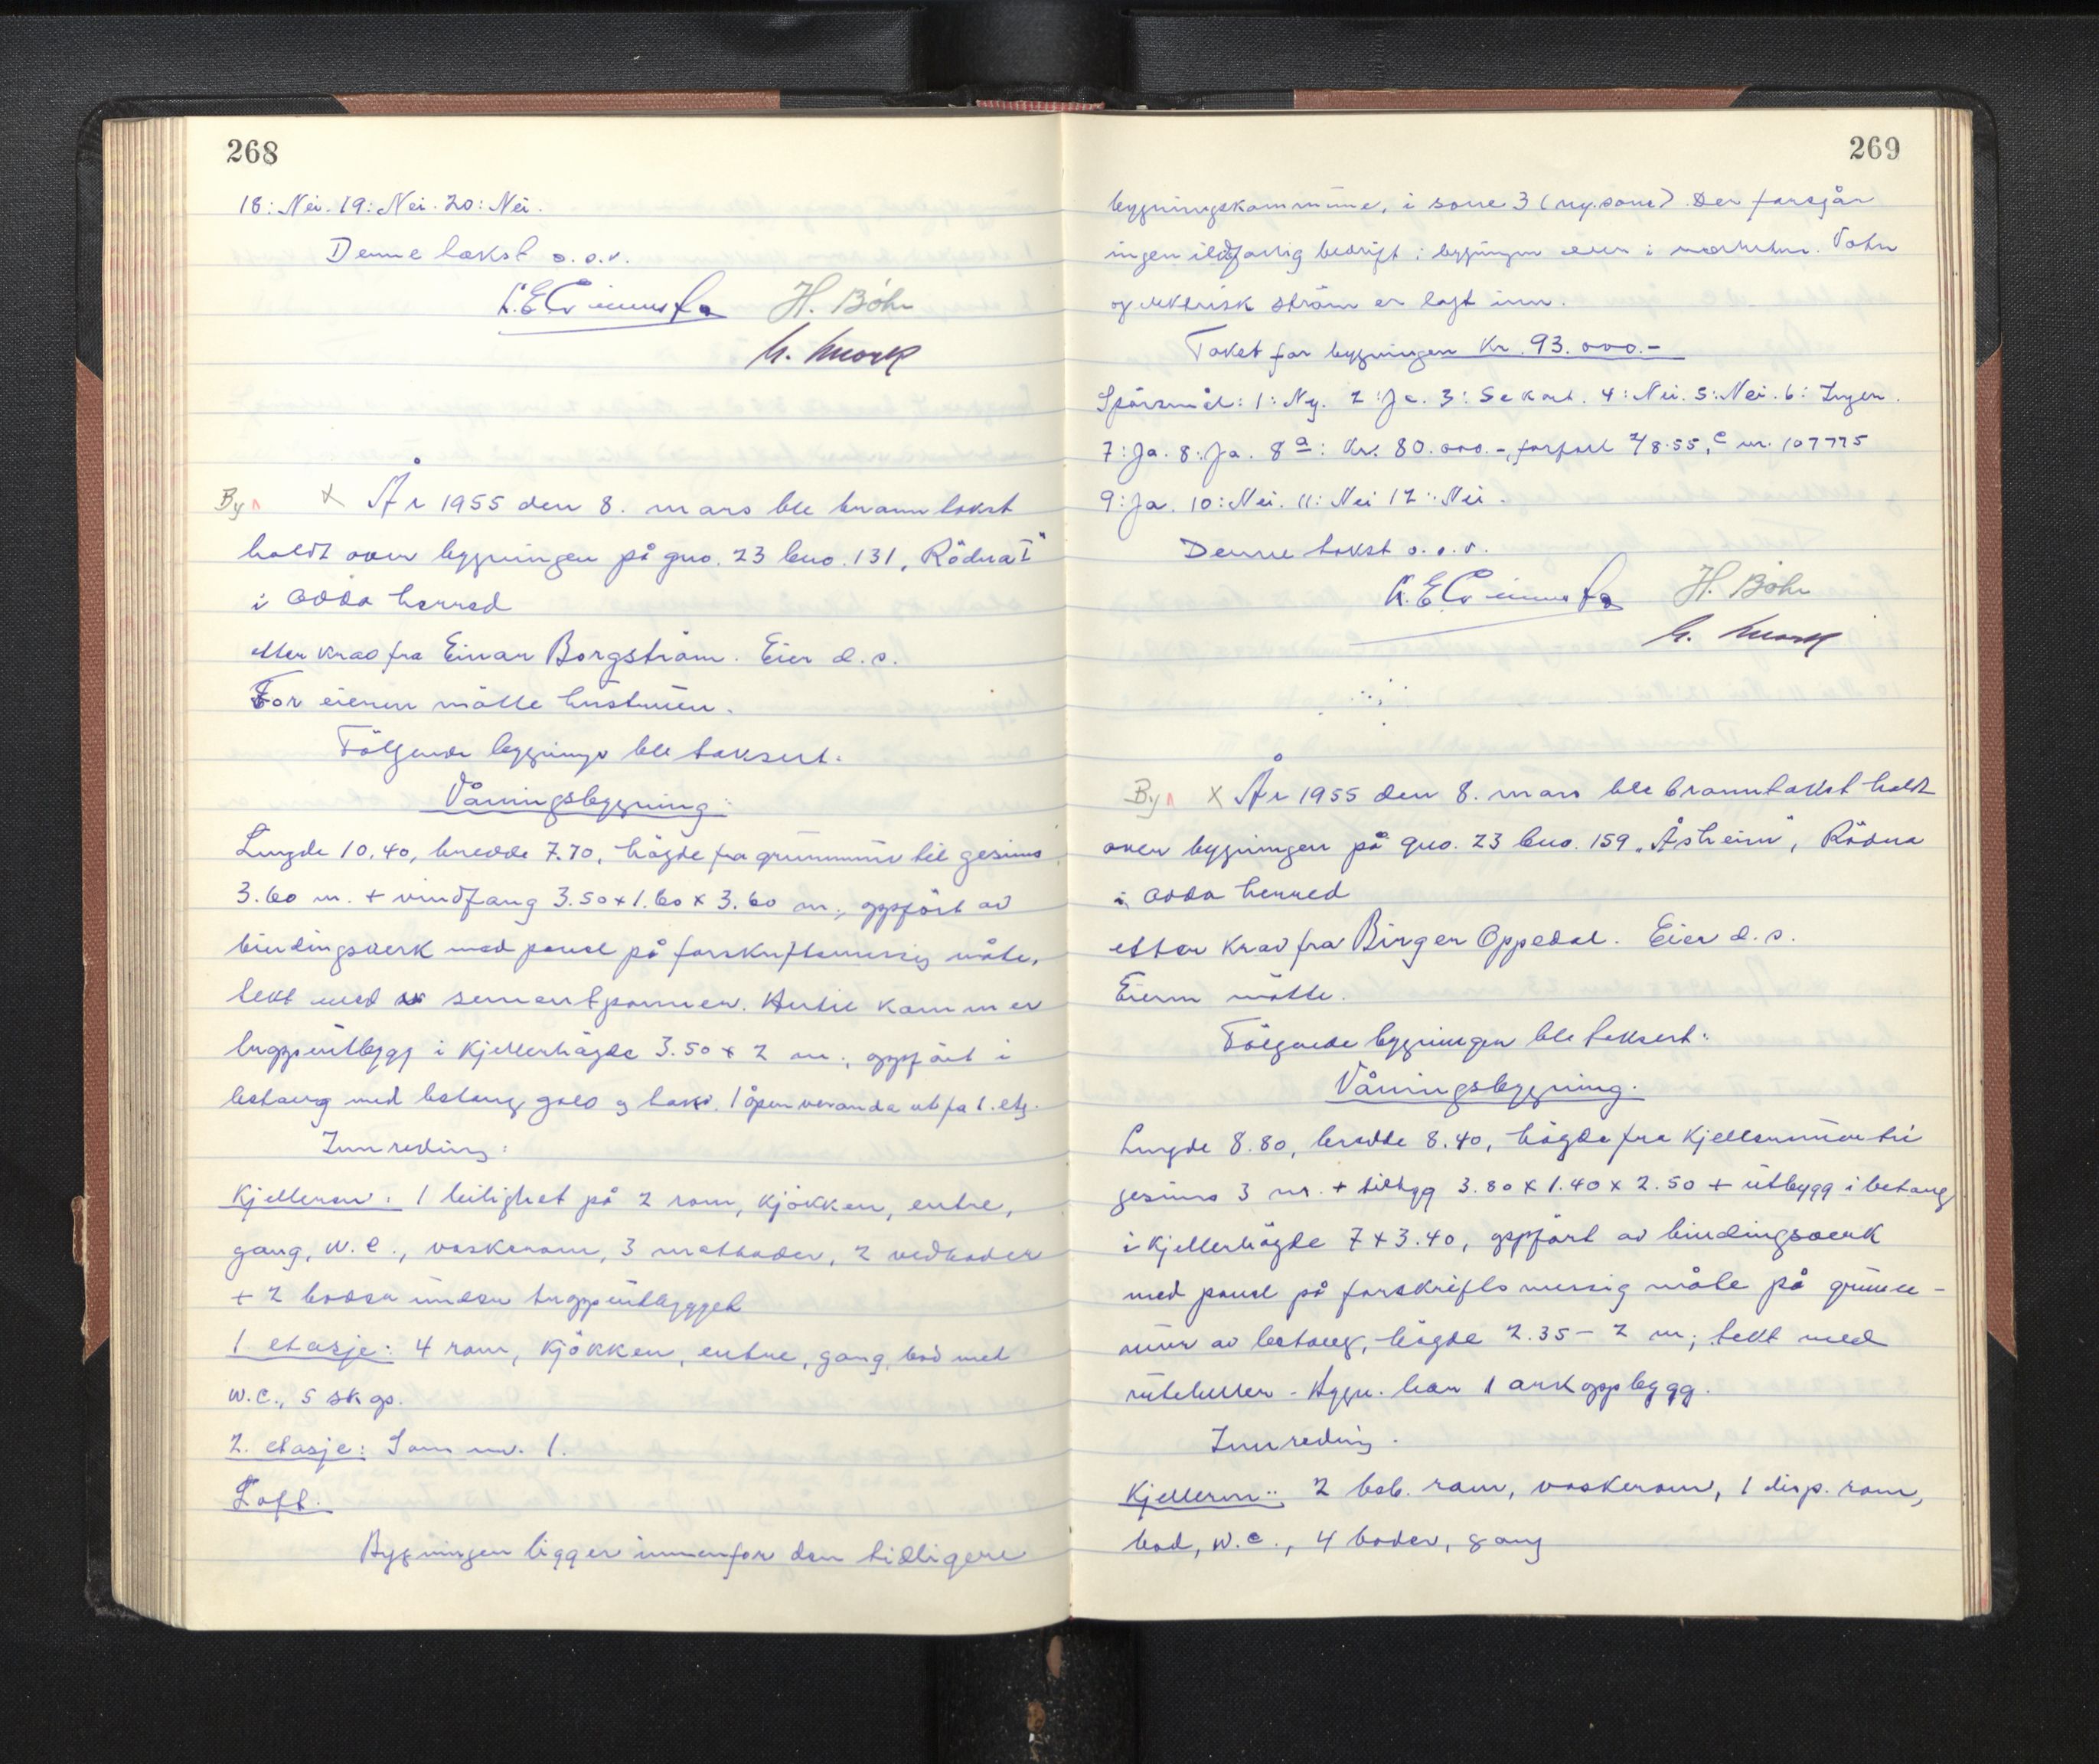 268
18: Nei. 19: Nei. 20: Nei.
Denne takst o.s.v.
H. Böhr
By x År 1955 den 8. mars ble branntakst
holdt over bygningen på gno. 23 bno. 131, Rödna I"
i Odda herred
etter krav fra Einar Borgström. Eier d.s.
For eieren mötte hustruen.
Fölgende bygninger ble taksert:
Våningsbygning:
Lengde 10.40, bredde 7.70, högde fra grunnmur til gesims
3.60 m. + vindfang 3.50 x 1.60 x 3.60 m., oppfört av
bindingsverk med panel på forskriftsmessig måte,
tekt med sementpanner. Hertil kommer
trappeutbygg i kjellerhögde 3.50 x 2 m., oppfört i
betong med betong golv og tak. 1 åpen veranda ut fra 1. etg.
Innreding:
Kjelleren: 1 leilighet på 2 rom, kjökken, entre,
gang, w.c., vaskerom, 3 matboder, 2 vedboder
+ 2 boder under trappeutbygget
1. etasje: 4 rom, kjökken, entre, gang, bad med
w.c., 5 skap.
2. etasje: Som nr. 1.
Loft.
Bygningen ligger innenfor den tidligere
269
bygningskommune, i sone 3 (ny.sone). Der foregår
ingen ildsfarlig bedrift i bygningen eller i nærheten. Vatn
og elektrisk ström er lagt inn.
Takst for bygningen Kr. 93.000.-
Spörsmål: 1: Ny. 2: Ja. 3: Se kart. 4: Nei. 5: Nei. 6: Ingen.
7: Ja. 8: Ja. 8a: Kr. 80.000.-, forfall 7/8.55, C nr. 107775
9: Ja. 10: Nei. 11: Nei 12: Nei.
Denne takst o.s.v.
H. Böhr
By x År 1955 den 8. mars ble branntakst holdt
over bygningen på gno. 23 bno. 159 „Åsheim", Rödna
i Odda herred
etter krav fra Birger Oppedal. Eier d.s.
Eieren mötte.
Fölgende bygninger ble taksert:
Våningsbygning.
Lengde 8.80, bredde 8.40, högde fra kjellermur til
gesims 3 m. + tilbygg 3.80 x 1.40 x 2.50 + utbygg i betong
i kjellerhögde 7 x 3.40, oppfört av bindingsverk
med panel på forskriftsmessig måte på grunn-
mur av betong, högde 2.35 - 2 m., tekt med
ruteheller. Bygn. har 1 arkoppbygg.
Innreding.
Kjelleren: 2 beb. rom, vaskerom, 1 disp. rom,
bad, w.c., 4 boder, gang